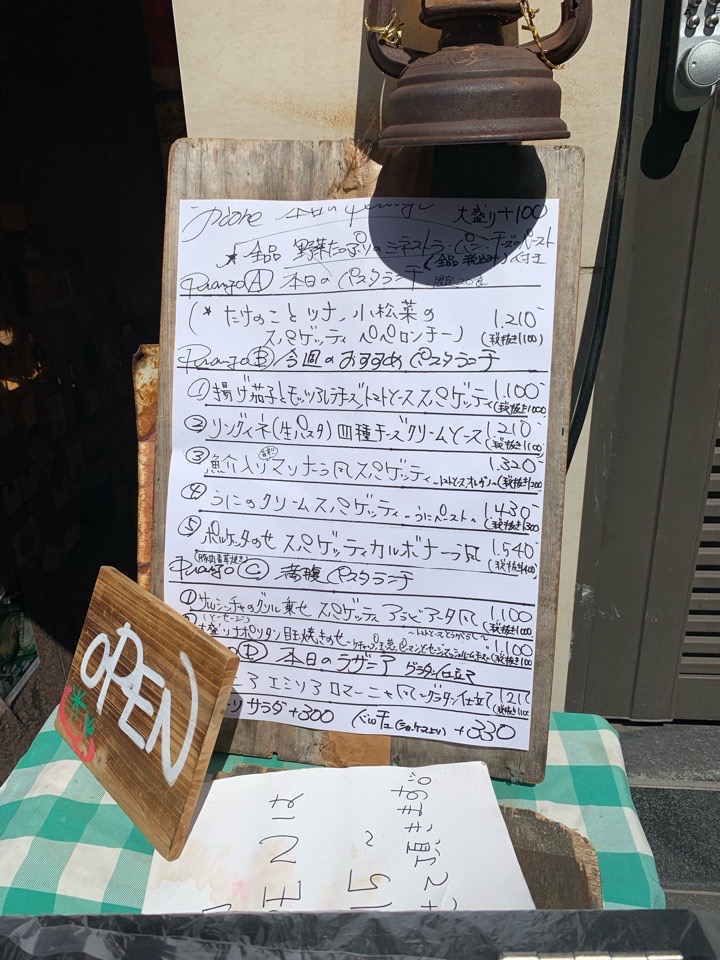 本日の Pranzo
大盛り+100
★全品 野菜たっぷりのミネストラ・パン・チーズのペースト
(全品 税込み) 付き
Pranzo Ⓐ 本日の パスタランチ
(* たけのこと ツナ、小松菜の 1,210-
スパゲッティ ペペロンチーノ) (税抜き1100)
Pranzo Ⓑ 今週の おすすめ パスタランチ
① 揚げ茄子とモッツァレラチーズ トマトソース スパゲッティ 1,100- (税抜き1000)
② リングイネ(生パスタ) 四種チーズ クリームソース 1,210- (税抜き1100)
③ 魚介入り マリナーラ風 スパゲッティ 〜トマトソース オレガノ〜 1,320- (税抜き1200)
④ うにのクリーム スパゲッティ 〜うにペースト〜 1,430- (税抜き1300)
⑤ ポルケッタのせ スパゲッティ カルボナーラ風 1,540- (税抜き1400)
Pranzo Ⓒ 満腹 パスタランチ
① サルシッチャのグリル乗せ スパゲッティ アラビアータ風 1,100
(ソーセージ) (税抜き1000
大盛り ナポリタン 目玉焼きのせ 1,100
Ⓓ 本日の ラザニア グラタン仕立て
エミリア ロマーニャ風 〜グラタン仕立て 1,210
サラダ+300 +330
OPEN
OPEN は
て頂きます。